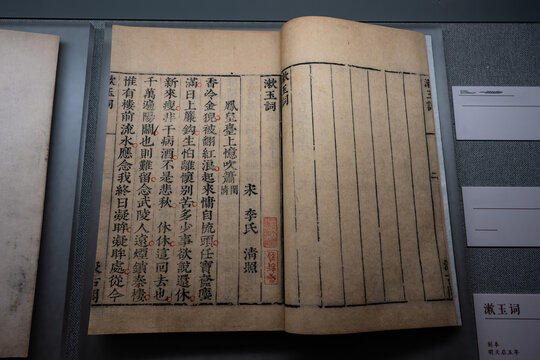 漱玉詞
二
漱玉詞
漱玉詞
鳳皇臺上憶吹簫
宋 李氏 清照
香冷金猊被翻紅浪起來慵自梳頭任寶奩塵
滿日上簾鈎生怕離懷別苦多少事欲說還休
新來瘦非干病酒不是悲秋 休休這回去也
千萬遍陽關也則難留念武陵人遠煙鎖秦樓
惟有樓前流水應念我終日凝眸凝眸處從今
漱玉詞
漱玉词
刻本
明天启五年